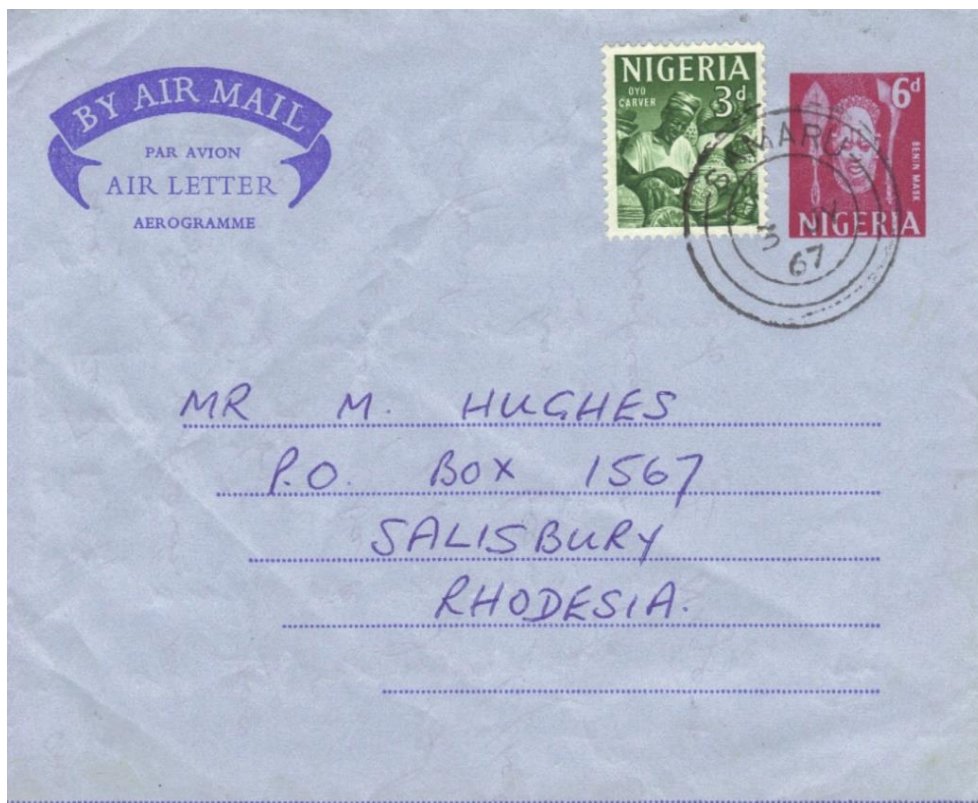 BY AIR MAIL
PAR AVION
AIR LETTER
AEROGRAMME
NIGERIA
3d
OYO
CARVER
6d
BENIN MASK
NIGERIA
SAMARU
3
67
MR M. HUGHES
P.O. BOX 1567
SALISBURY
RHODESIA.